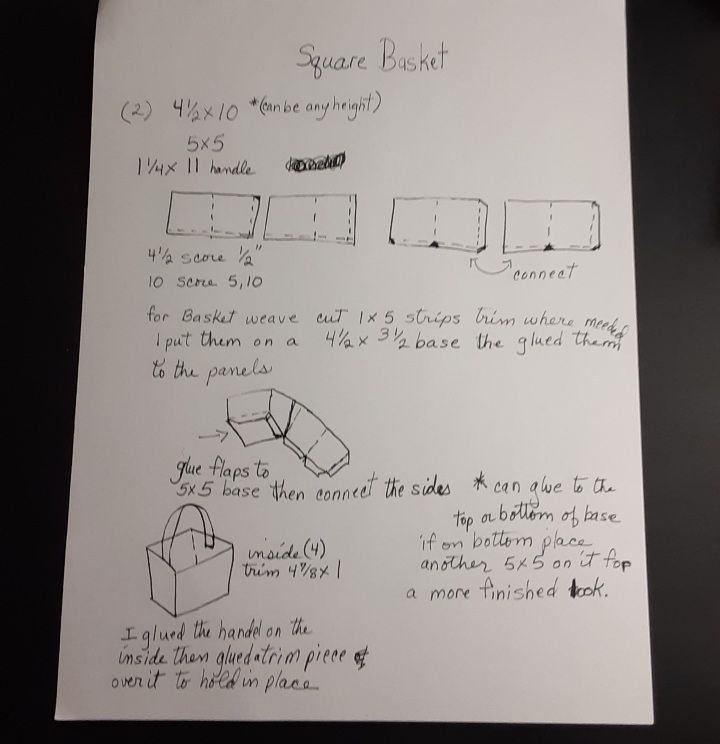 Square Basket
(2) 4½ x 10 *(can be any height)
5x5
1¼ x 11 handle
4½ score ½"
10 score 5,10
connect
for Basket weave cut 1 x 5 strips trim where needed
I put them on a 4½ x 3½ base the glued them
to the panels
glue flaps to
5x5 base then connect the sides * can glue to the
top or bottom of base
if on bottom place
another 5x5 on it for
a more finished look.
inside (4)
trim 4⅞ x 1
I glued the handel on the
inside then glued a trim piece
over it to hold in place